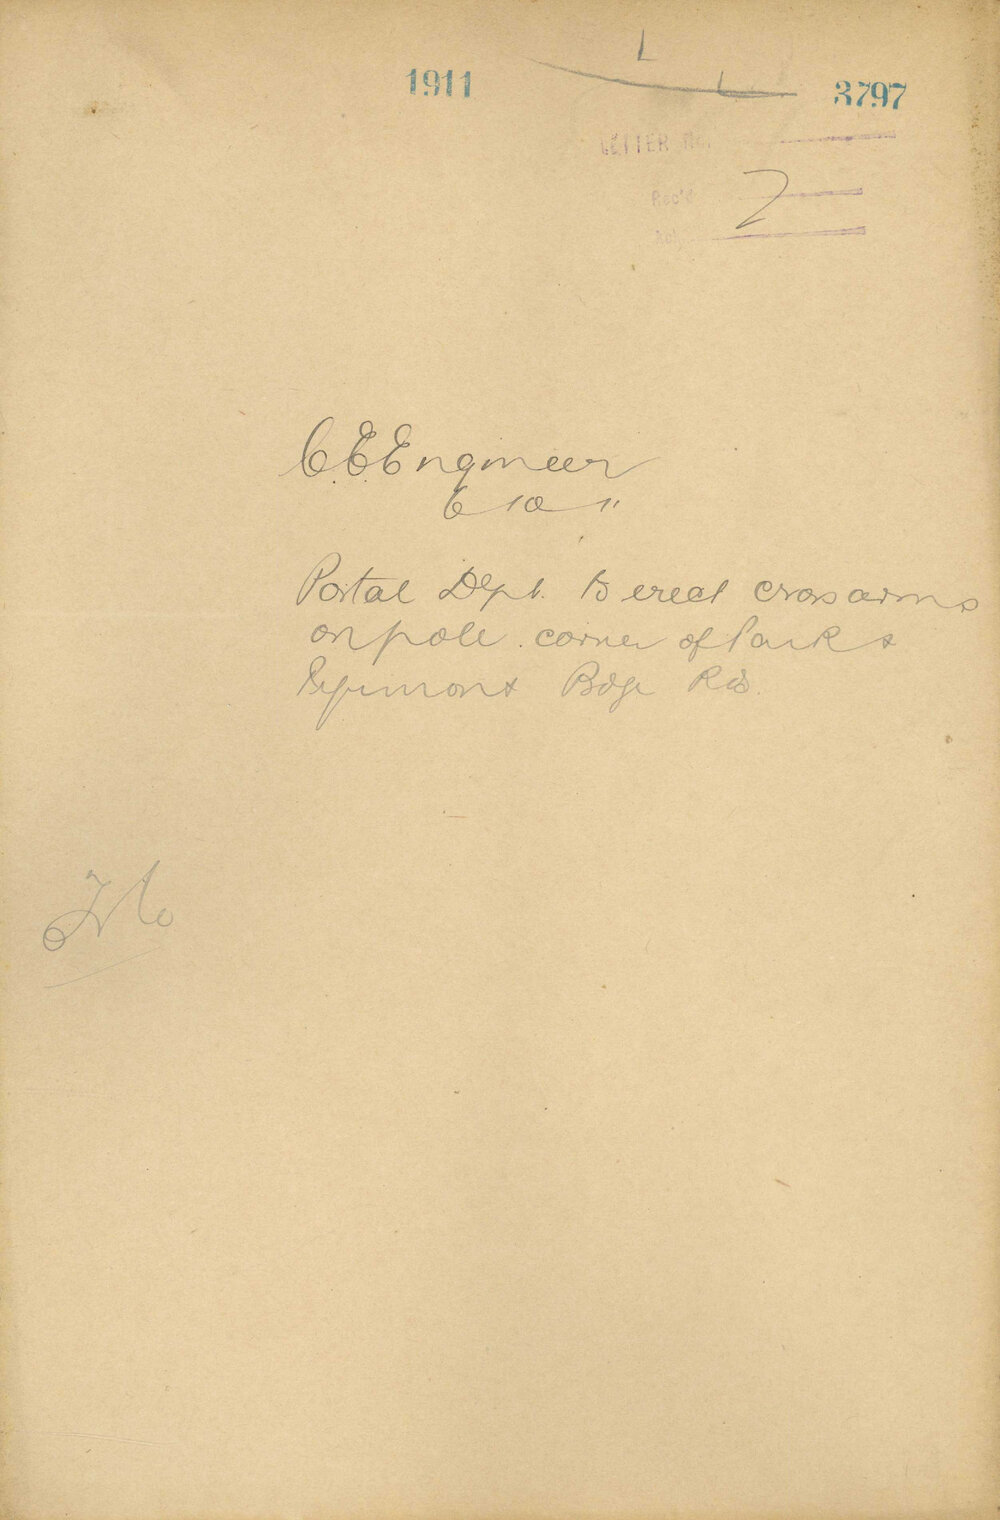 1911
3797
LETTER No.
Rec'd
C.E. Engineer
6 10 11
Postal Dept. to erect cross arms
on pole corner of Park &
Pyrmont Bdge Rds.